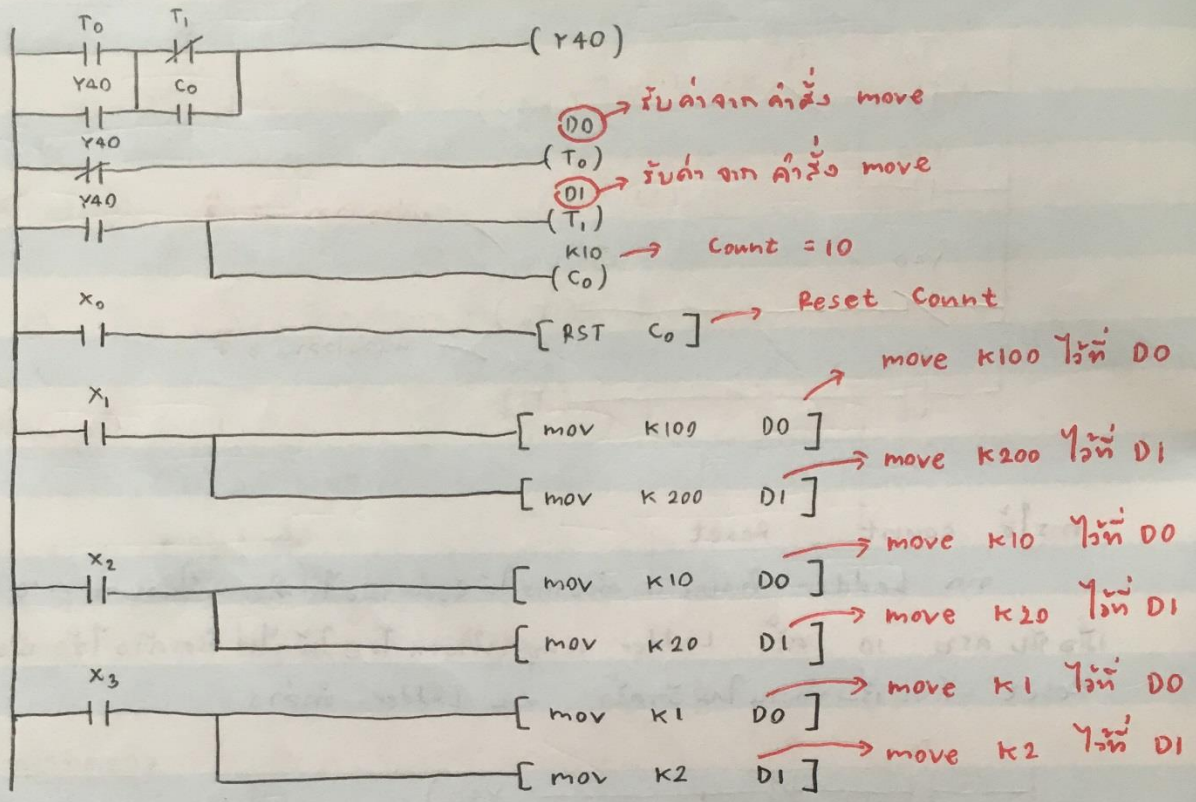 T0 T1
( Y40 )
Y40 C0
D0 รับค่าจาก คำสั่ง move
Y40
( T0 )
D1 รับค่า จาก คำสั่ง move
Y40
( T1 )
K10 Count = 10
( C0 )
X0
[ RST C0 ] Reset Count
move K100 ไว้ที่ D0
X1
[ mov K100 D0 ]
move K200 ไว้ที่ D1
[ mov K 200 D1 ]
move K10 ไว้ที่ D0
X2
[ mov K10 D0 ]
move K20 ไว้ที่ D1
[ mov K20 D1 ]
X3
move K1 ไว้ที่ D0
[ mov K1 D0 ]
move K2 ไว้ที่ D1
[ mov K2 D1 ]